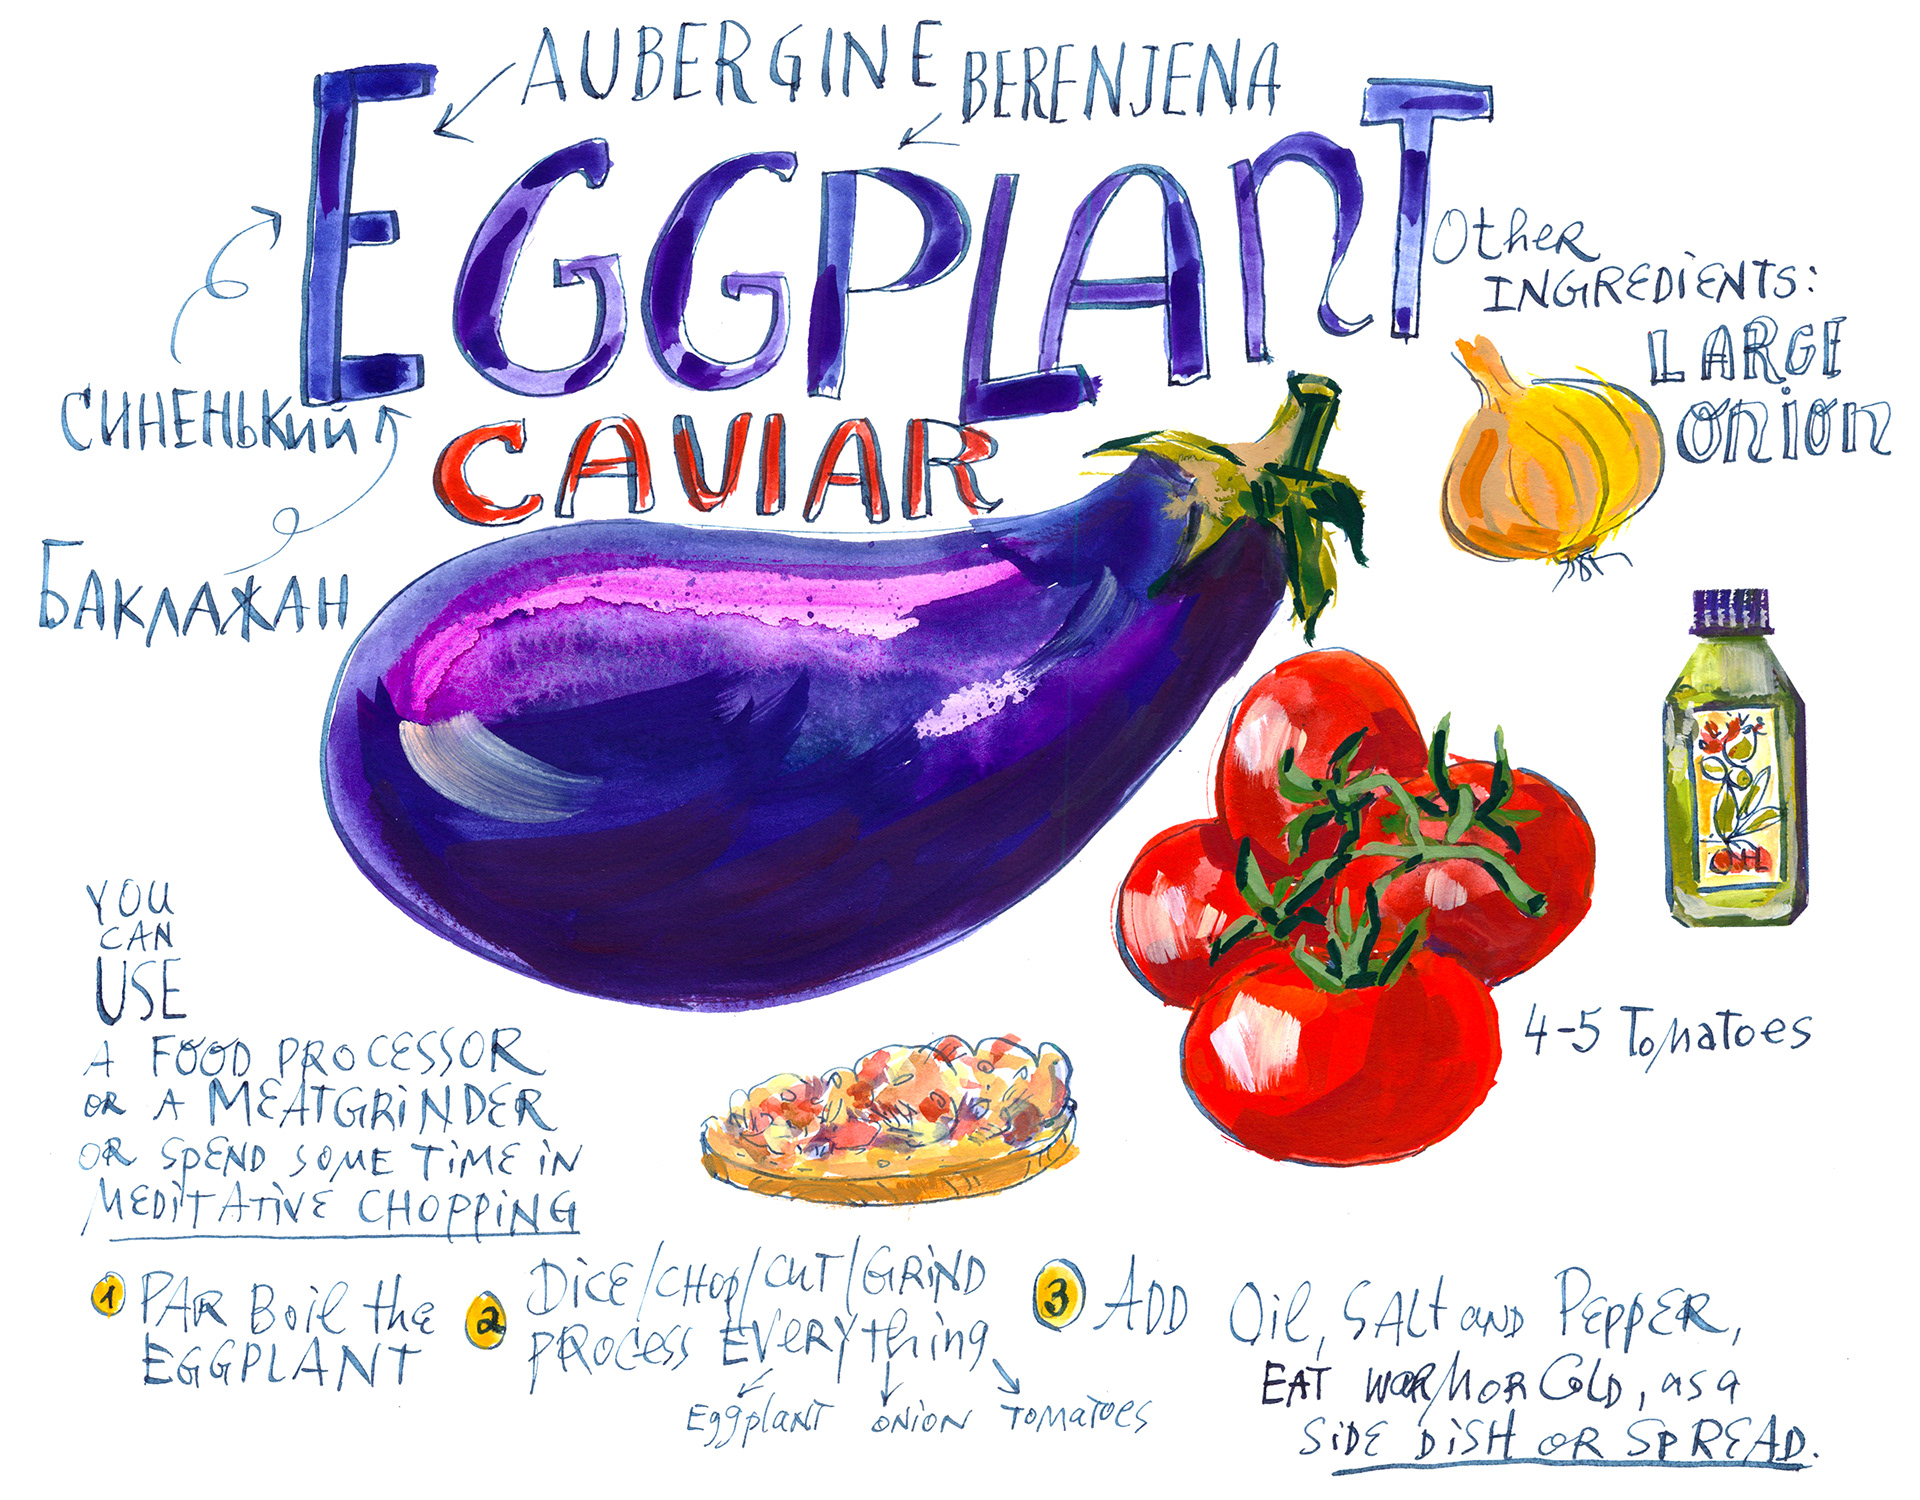 AUBERGINE
BERENJENA
EGGPLANT
CAVIAR
СИНЕНЬКИЙ
БАКЛАЖАН
Other
INGREDIENTS:
LARGE
ONION
4-5 TOMATOES
YOU
CAN
USE
A FOOD PROCESSOR
OR A MEATGRINDER
OR SPEND SOME TIME IN
MEDITATIVE CHOPPING
1 PAR Boil the
EGGPLANT
2 DICE/CHOP/CUT/GRIND
PROCESS EVERYthing
Eggplant ONION TOMATOES
3 ADD Oil, SALT AND PEPPER,
EAT WARM OR COLD, as a
SIDE DISH OR SPREAD.